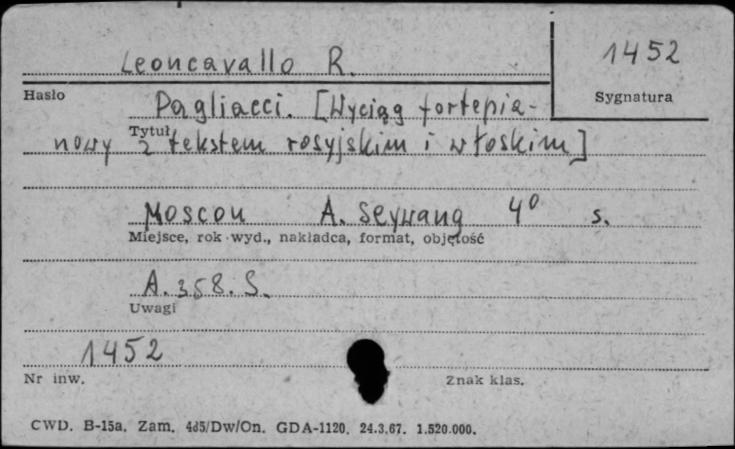 Leoncavallo R.
1452
Hasło
Sygnatura
Pagliacci. [Wyciąg fortepia-
Tytuł
nowy z tekstem rosyjskim i włoskim]
Moscou A. Seywang 4° s.
Miejsce, rok wyd., nakładca, format, objętość
A. 358. S.
Uwagi
1452
Nr inw.
Znak klas.
CWD. B-15a. Zam. 485/Dw/On. GDA-1120. 24.3.67. 1.520.000.